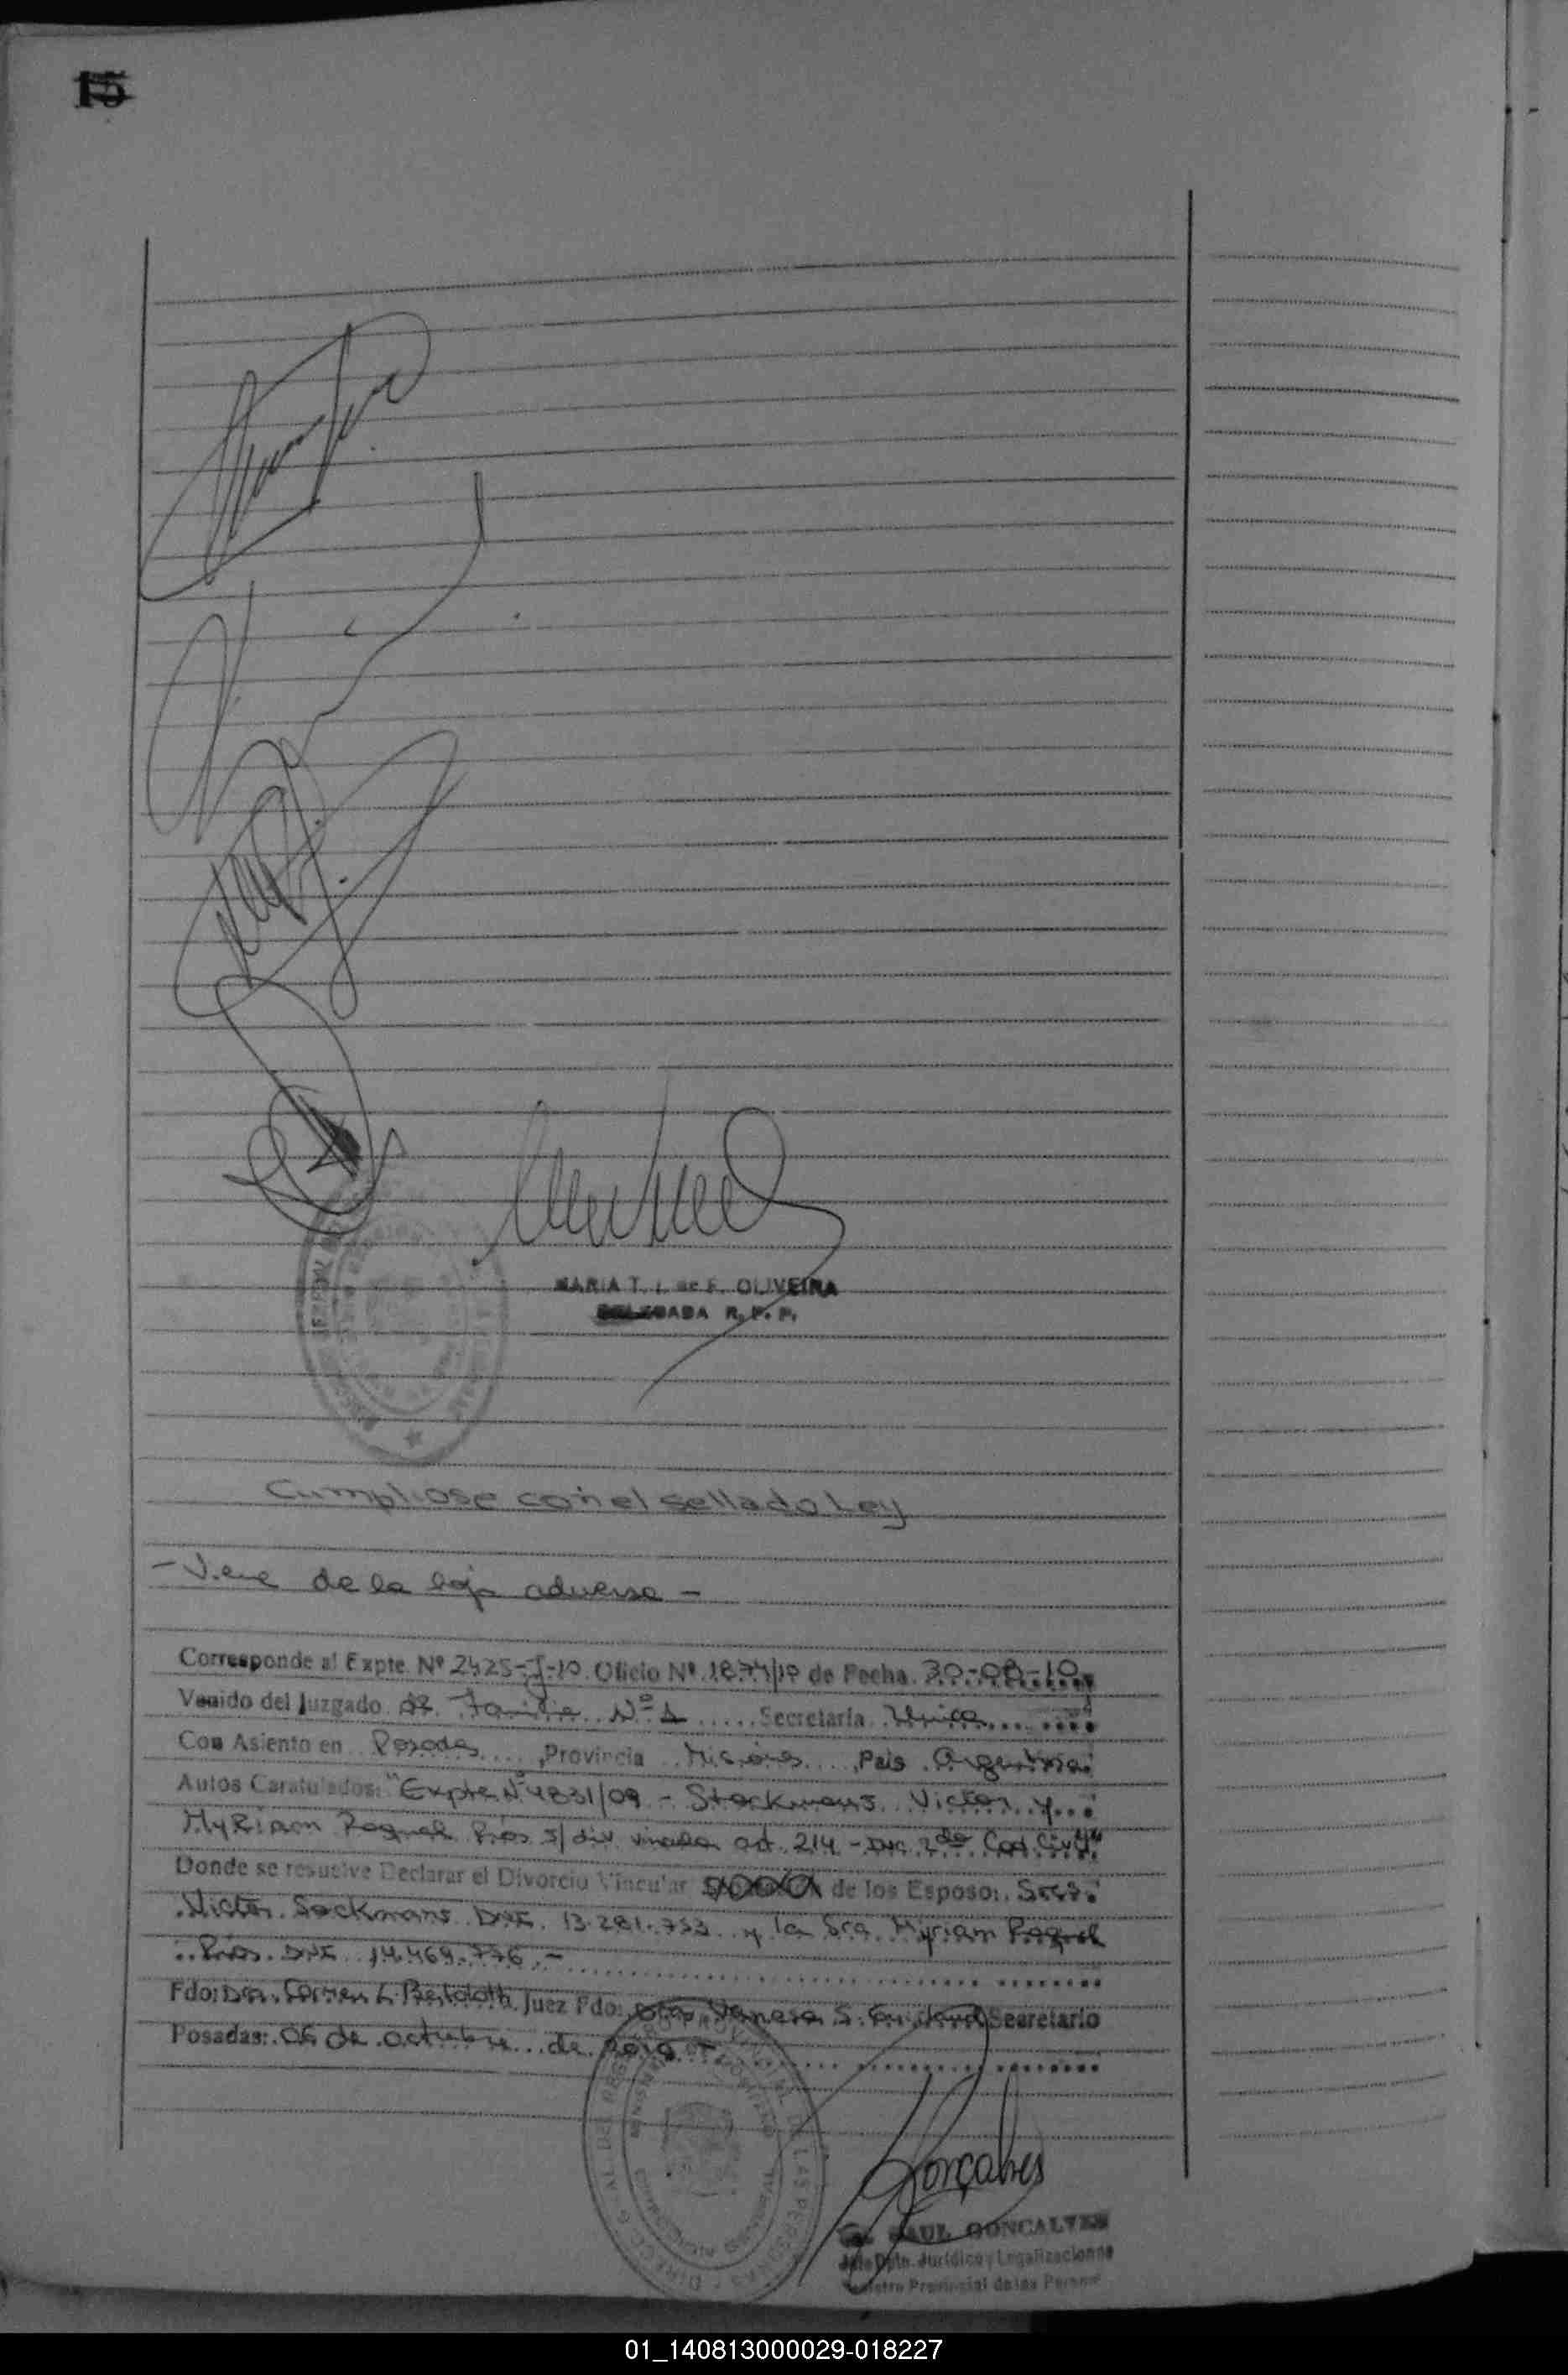 15
MARIA T. I. de F. OLIVEIRA
DELEGADA R. P. P.
Cumpliose con el sellado Ley
- Viene de la hoja adversa -
Corresponde al Expte. Nº 2425-J-10. Oficio Nº 1874/10 de Fecha 30-08-10
Venido del Juzgado de Familia Nº 1 Secretaría Única
Con Asiento en Posadas, Provincia Misiones, País Argentina
Autos Caratulados: "Expte Nº 4831/09 - Stockmans Victor y
Myriam Raquel Ríos s/ div. vincular art. 214 - inc. 2do Cod. Civil"
Donde se resuelve Declarar el Divorcio Vincular de los Esposos: Sres.
Victor Sockmans DNI. 13.281.753 y la Sra. Myriam Raquel
Ríos. DNI 14.469.776.-
Fdo: Dra. Carmen L. Juez Fdo: Dra. Vanesa S. Secretario
Posadas: 06 de octubre de 2010
Goncalves
RAUL GONCALVES
Jefe Dpto. Jurídico y Legalizaciones
Registro Provincial de las Personas
01_140813000029-018227